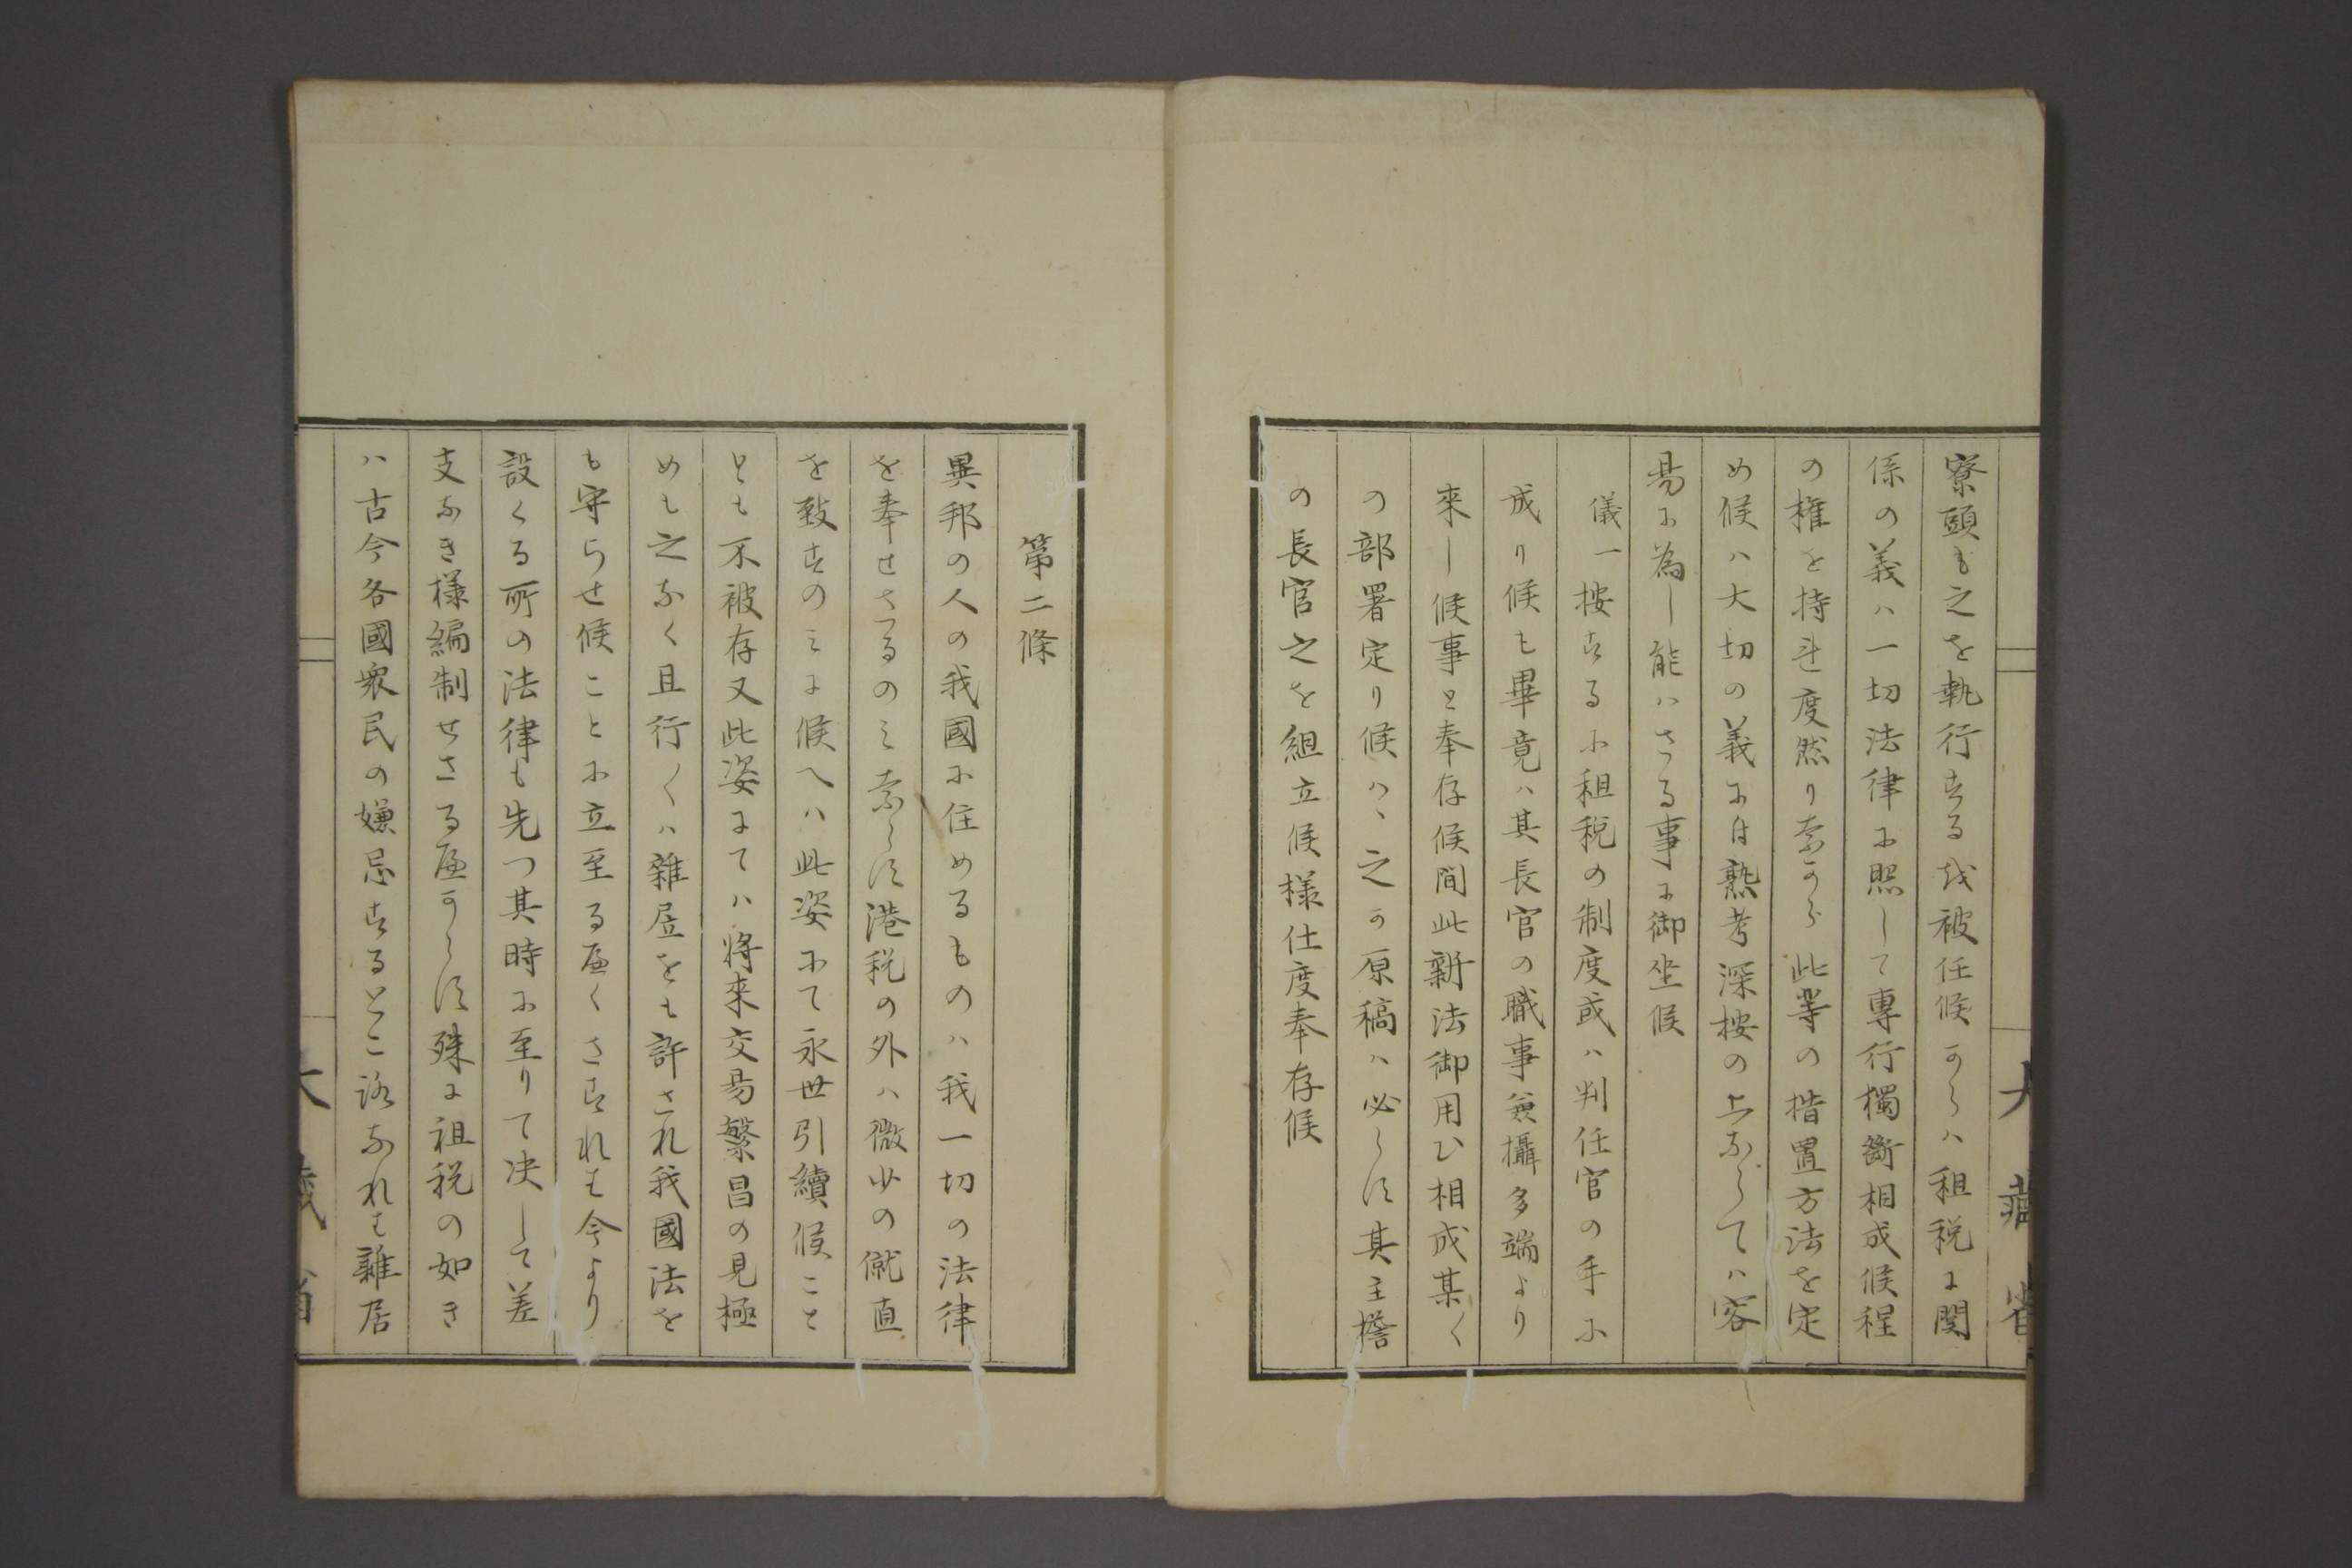 寮頭も之を執行する故被任候からハ租税に関
係の義ハ一切法律に照して專行獨斷相成候程
の權を持し度然りなから此等の措置方法を定
め候ハ大切の義には熟考深按の上ならてハ容
易に為し能ハさる事に御坐候
儀一按するに租税の制度或ハ判任官の手に
成り候も畢竟ハ其長官の職事兼攝多端より
來し候事と奉存候間此新法御用ひ相成某く
の部署定り候ハヽ之か原稿ハ必らす其主擔
の長官之を組立候様仕度奉存候
大藏省
第二條
異邦の人の我國に住めるものハ我一切の法律
を奉せさるのみならす港税の外ハ微少の僦直
を致すのみに候へハ此姿にて永世引續候こと
とも不被存又此姿にてハ将来交易繁昌の見極
めも之なく且行くハ雜居をも許され我國法を
も守らせ候ことに立至るへくされも今より
設くる所の法律も先つ其時に至りて决して差
支なき様編制せさるへからす殊に租税の如き
ハ古今各國衆民の嫌忌するところなれも雜居
大藏省